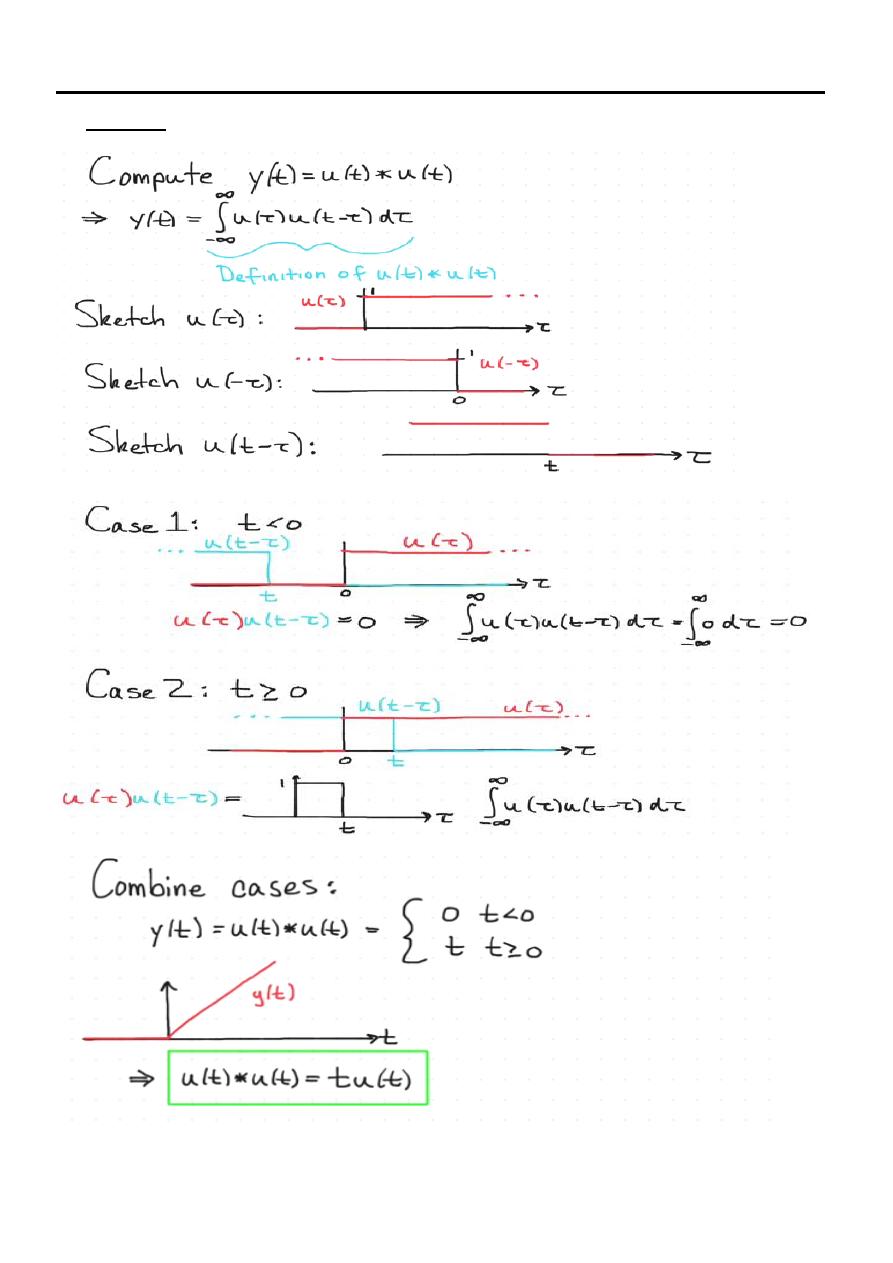 Compute y(t) = u(t) * u(t)
⇒ y(t) = ∫_{-∞}^{∞} u(τ)u(t-τ) dτ
Definition of u(t) * u(t)
Sketch u(τ): u(τ) 1 ... τ
Sketch u(-τ): ... 1 u(-τ) 0 τ
Sketch u(t-τ): t τ
Case 1: t < 0
... u(t-τ) u(τ) ...
t 0 τ
u(τ)u(t-τ) = 0 ⇒ ∫_{-∞}^{∞} u(τ)u(t-τ) dτ = ∫_{-∞}^{∞} 0 dτ = 0
Case 2: t ≥ 0
... u(t-τ) u(τ) ...
0 t τ
u(τ)u(t-τ) = 1 t τ ∫_{-∞}^{∞} u(τ)u(t-τ) dτ
Combine cases:
y(t) = u(t) * u(t) = { 0 t<0
t t≥0
y(t)
t
⇒ u(t) * u(t) = tu(t)